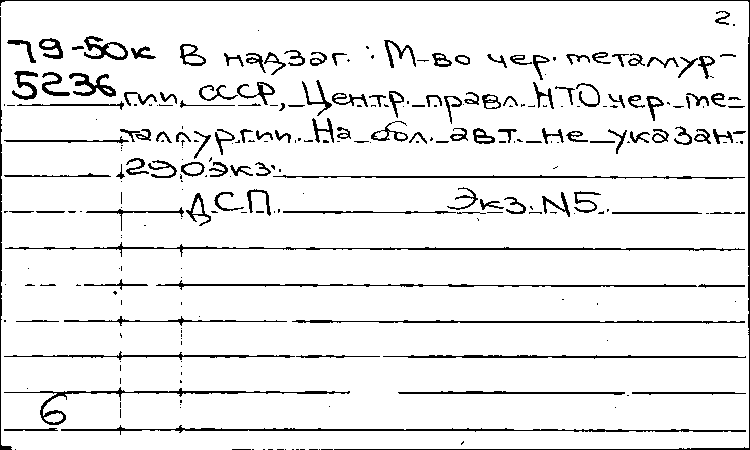 2.
79-50к В надзаг.: М-во чер. металлур-
5236 гии СССР, Центр. правл. НТО чер. ме-
таллургии. На обл. авт. не указан.
290 экз.
ДСП. Экз. N5.
6